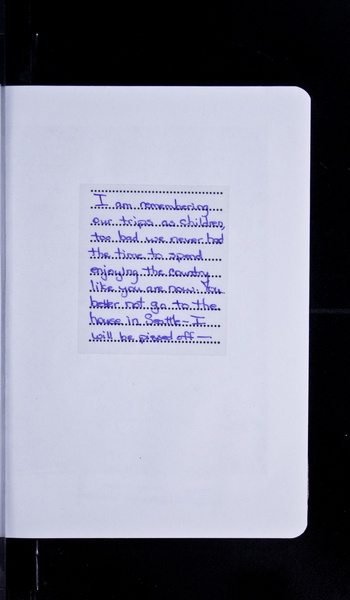 I am remembering
our trips as children,
too bad we never had
the time to spend
enjoying the country
like you are now. You
better not go to the
house in Seattle - I
will be pissed off —